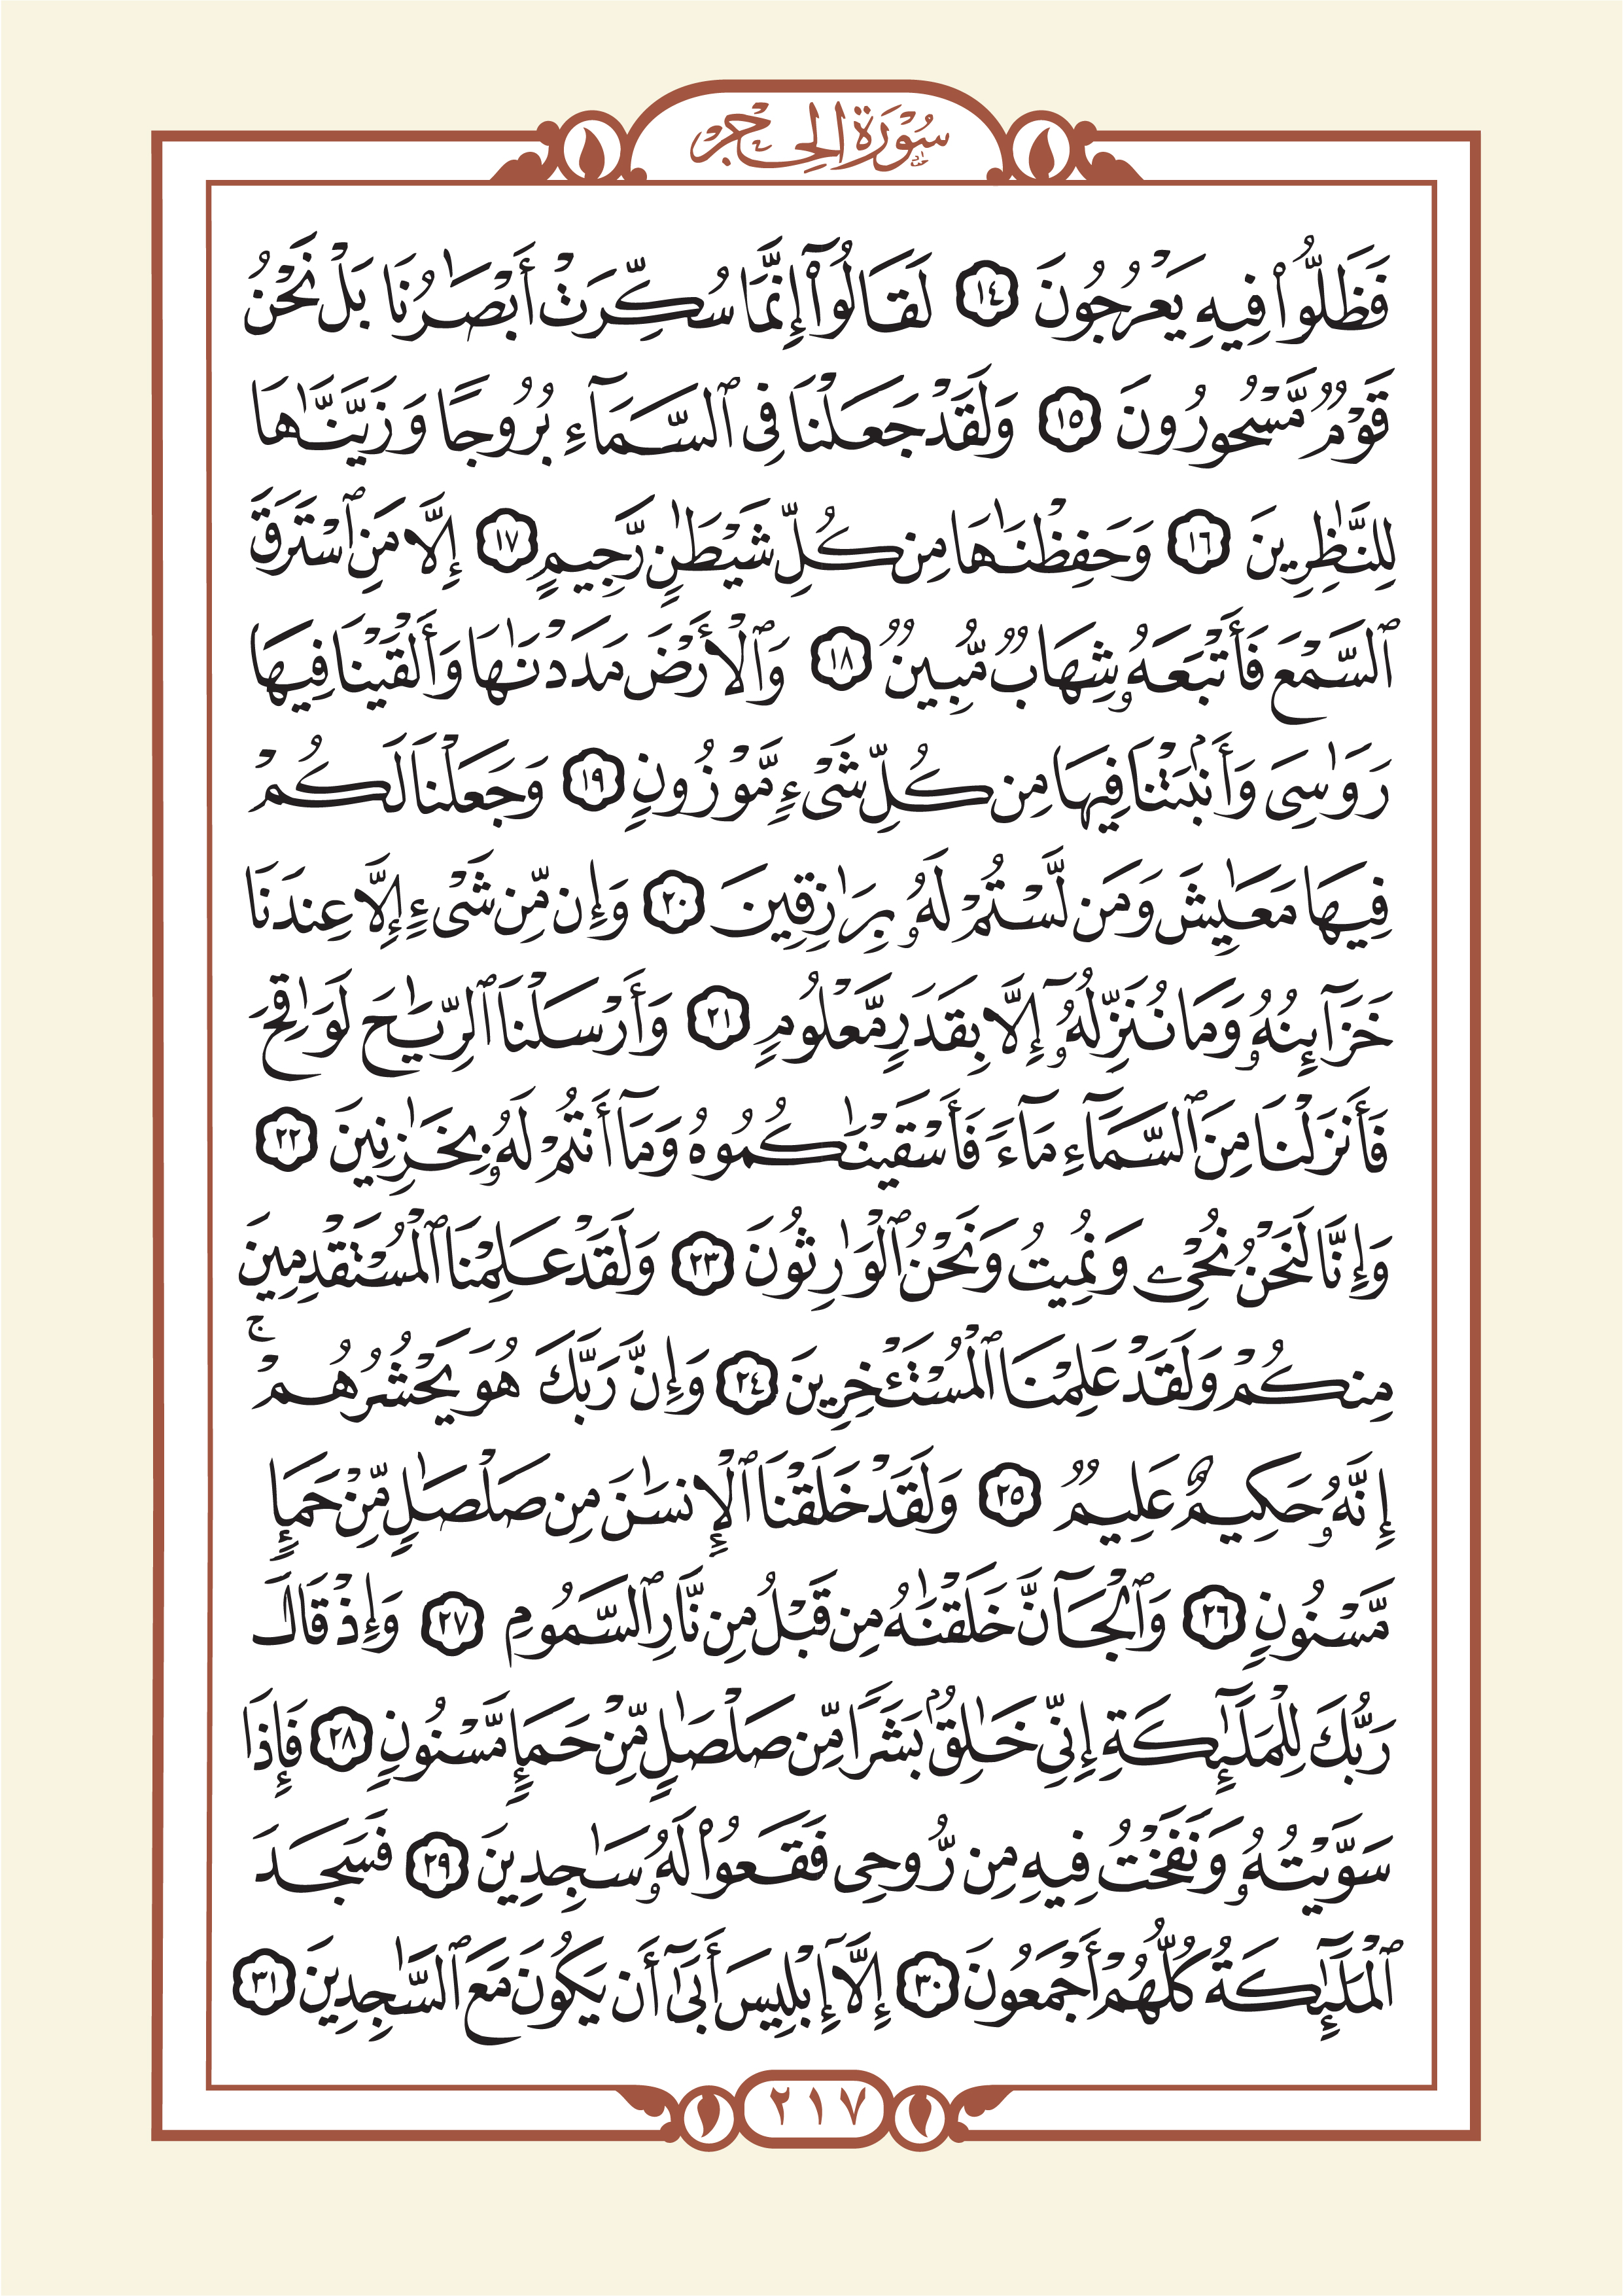 سُورَةُ الحِجر
فَظَلُّوا۟ فِيهِ يَعْرُجُونَ ١٤ لَقَالُوٓا۟ إِنَّمَا سُكِّرَتْ أَبْصَـٰرُنَا بَلْ نَحْنُ
قَوْمٌ مَّسْحُورُونَ ١٥ وَلَقَدْ جَعَلْنَا فِى ٱلسَّمَآءِ بُرُوجًا وَزَيَّنَّـٰهَا
لِلنَّـٰظِرِينَ ١٦ وَحَفِظْنَـٰهَا مِن كُلِّ شَيْطَـٰنٍ رَّجِيمٍ ١٧ إِلَّا مَنِ ٱسْتَرَقَ
ٱلسَّمْعَ فَأَتْبَعَهُۥ شِهَابٌ مُّبِينٌ ١٨ وَٱلْأَرْضَ مَدَدْنَـٰهَا وَأَلْقَيْنَا فِيهَا
رَوَٰسِىَ وَأَنۢبَتْنَا فِيهَا مِن كُلِّ شَىْءٍ مَّوْزُونٍ ١٩ وَجَعَلْنَا لَكُمْ
فِيهَا مَعَـٰيِشَ وَمَن لَّسْتُمْ لَهُۥ بِرَٰزِقِينَ ٢٠ وَإِن مِّن شَىْءٍ إِلَّا عِندَنَا
خَزَآئِنُهُۥ وَمَا نُنَزِّلُهُۥٓ إِلَّا بِقَدَرٍ مَّعْلُومٍ ٢١ وَأَرْسَلْنَا ٱلرِّيَـٰحَ لَوَٰقِحَ
فَأَنزَلْنَا مِنَ ٱلسَّمَآءِ مَآءً فَأَسْقَيْنَـٰكُمُوهُ وَمَآ أَنتُمْ لَهُۥ بِخَـٰزِنِينَ ٢٢
وَإِنَّا لَنَحْنُ نُحْىِۦ وَنُمِيتُ وَنَحْنُ ٱلْوَٰرِثُونَ ٢٣ وَلَقَدْ عَلِمْنَا ٱلْمُسْتَقْدِمِينَ
مِنكُمْ وَلَقَدْ عَلِمْنَا ٱلْمُسْتَـْٔخِرِينَ ٢٤ وَإِنَّ رَبَّكَ هُوَ يَحْشُرُهُمْ ۚ
إِنَّهُۥ حَكِيمٌ عَلِيمٌ ٢٥ وَلَقَدْ خَلَقْنَا ٱلْإِنسَـٰنَ مِن صَلْصَـٰلٍ مِّنْ حَمَإٍ
مَّسْنُونٍ ٢٦ وَٱلْجَآنَّ خَلَقْنَـٰهُ مِن قَبْلُ مِن نَّارِ ٱلسَّمُومِ ٢٧ وَإِذْ قَالَ
رَبُّكَ لِلْمَلَـٰٓئِكَةِ إِنِّى خَـٰلِقٌۢ بَشَرًا مِّن صَلْصَـٰلٍ مِّنْ حَمَإٍ مَّسْنُونٍ ٢٨ فَإِذَا
سَوَّيْتُهُۥ وَنَفَخْتُ فِيهِ مِن رُّوحِى فَقَعُوا۟ لَهُۥ سَـٰجِدِينَ ٢٩ فَسَجَدَ
ٱلْمَلَـٰٓئِكَةُ كُلُّهُمْ أَجْمَعُونَ ٣٠ إِلَّآ إِبْلِيسَ أَبَىٰٓ أَن يَكُونَ مَعَ ٱلسَّـٰجِدِينَ ٣١
٢١٧